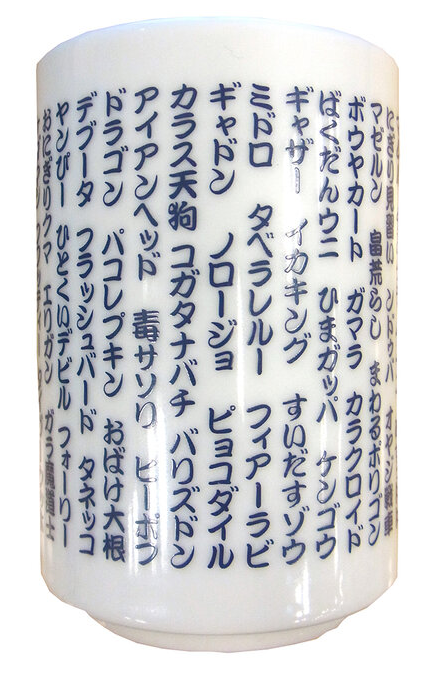 にぎり見習い ンドゥバ オヤジ戦車
マゼルン 畠荒らし まわるポリゴン
ボウヤカード ガマラ カラクロイド
ばくだんウニ ひまガッパ ケンゴウ
ギャザー イカキング すいだすゾウ
ミドロ タベラレルー フィアーラビ
ギャドン ノロージョ ピョコダイル
カラス天狗 コガタナバチ バリズドン
アイアンヘッド 毒サソリ ピーポフ
ドラゴン パコレプキン おばけ大根
デブータ フラッシュバード タネッコ
ヤンピー ひとくいデビル フォーリー
おにぎりクマ エリガン ガラ魔道士